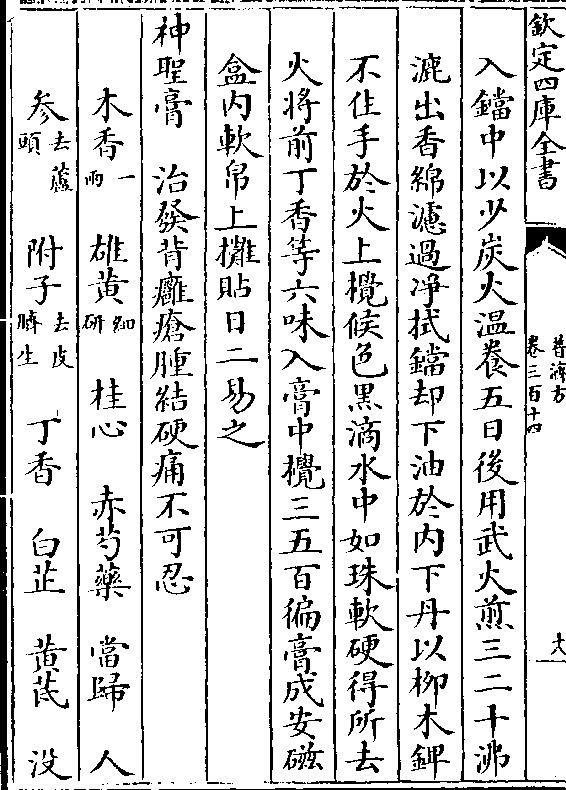 欽定四庫全書
普濟方
卷三百十四
十八
入鐺中以少炭火溫養五日後用武火煎三二十沸
漉出香綿濾過淨拭鐺却下油於内下丹以柳木鎞
不住手於火上攪候色黒滴水中如珠軟硬得所去
火將前丁香等六味入膏中攪三五百徧膏成安磁
盒内軟帛上攤貼日二易之
神聖膏　治發背癰瘡腫結硬痛不可忍
木香一兩　雄黄細研　桂心　赤芍藥　當歸　人
參去蘆頭　附子去皮臍生　丁香　白芷　黄芪　没